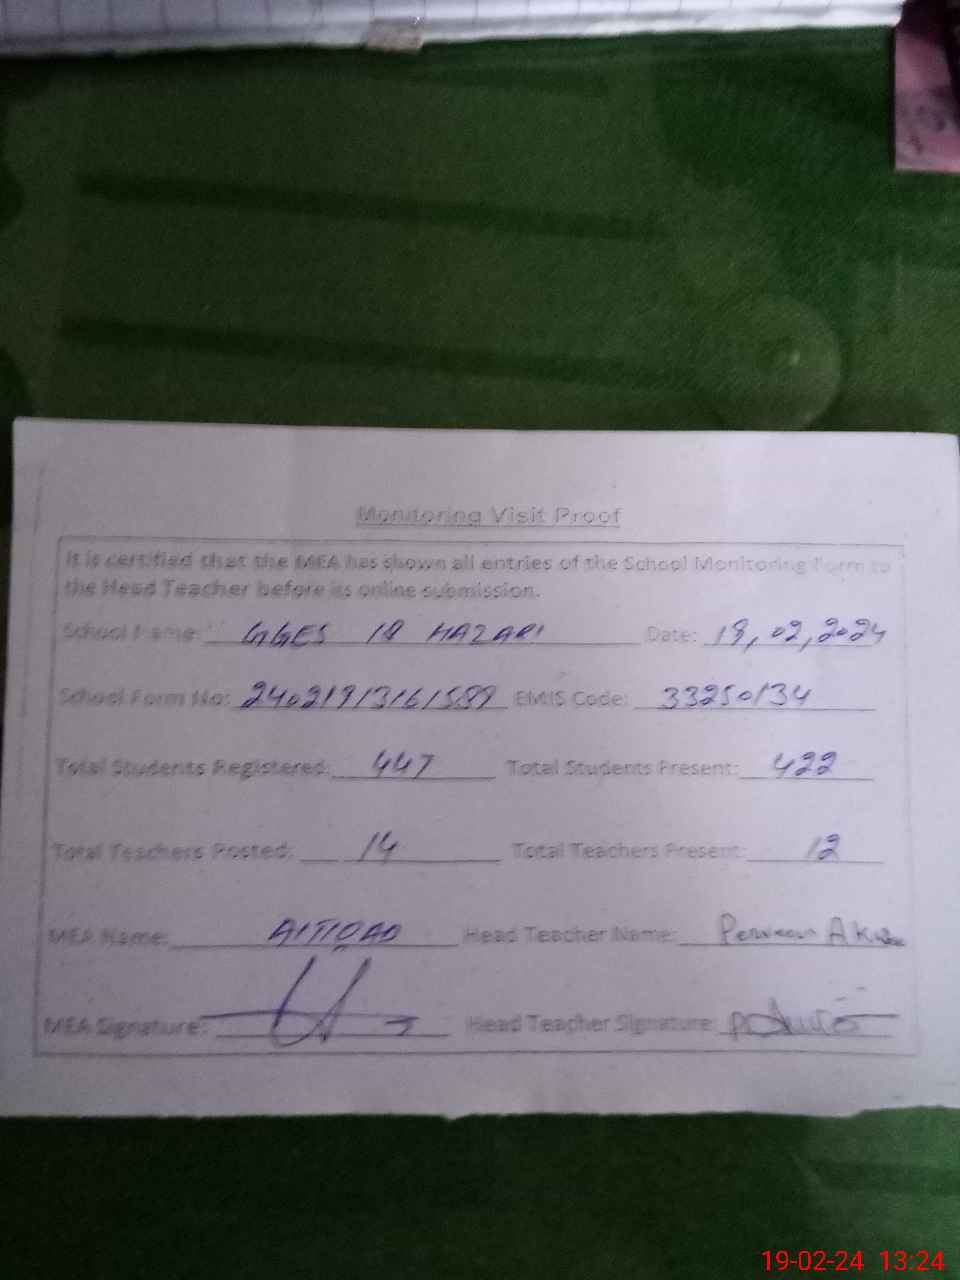 Monitoring Visit Proof
It is certified that the MEA has shown all entries of the School Monitoring Form to
the Head Teacher before its online submission.
School Name: GGES 18 HAZARI Date: 19,02,2024
School Form No: 24021913161589 EMIS Code: 33250134
Total Students Registered: 447 Total Students Present: 422
Total Teachers Posted: 14 Total Teachers Present: 12
MEA Name: Head Teacher Name: Perveen
MEA Signature: Head Teacher Signature:
19-02-24 13:24